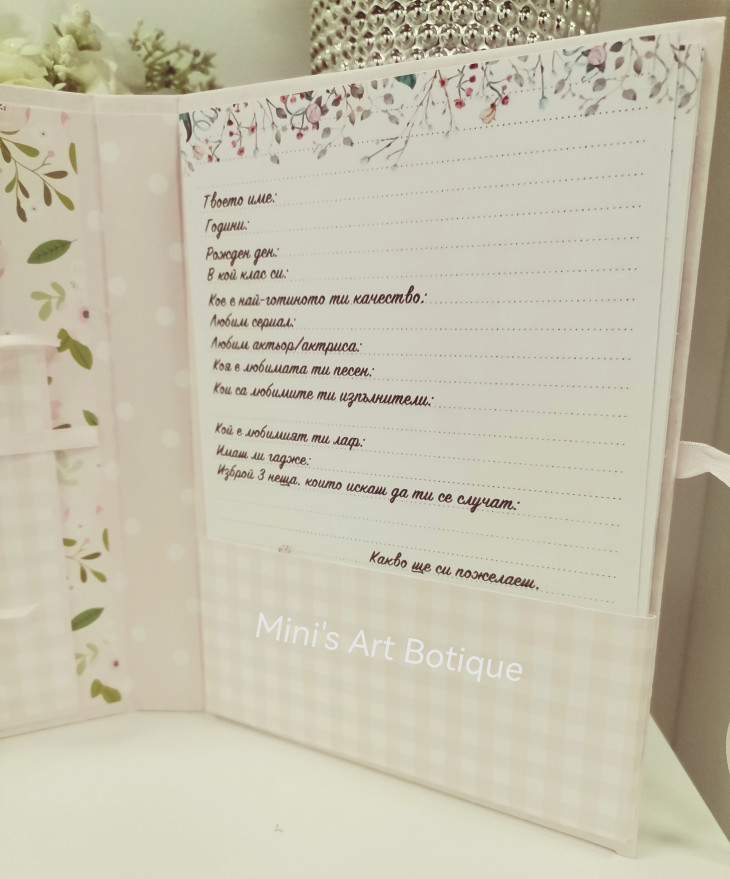 Твоето име:
Години:
Рожден ден:
В кой клас си:
Кое е най-готиното ти качество:
Любим сериал:
Любим актьор/актриса:
Коя е любимата ти песен:
Кои са любимите ти изпълнители:
Кой е любимият ти лаф:
Имаш ли гадже:
Изброй 3 неща, които искаш да ти се случат:
Какво ще си пожелаеш,
Mini's Art Botique